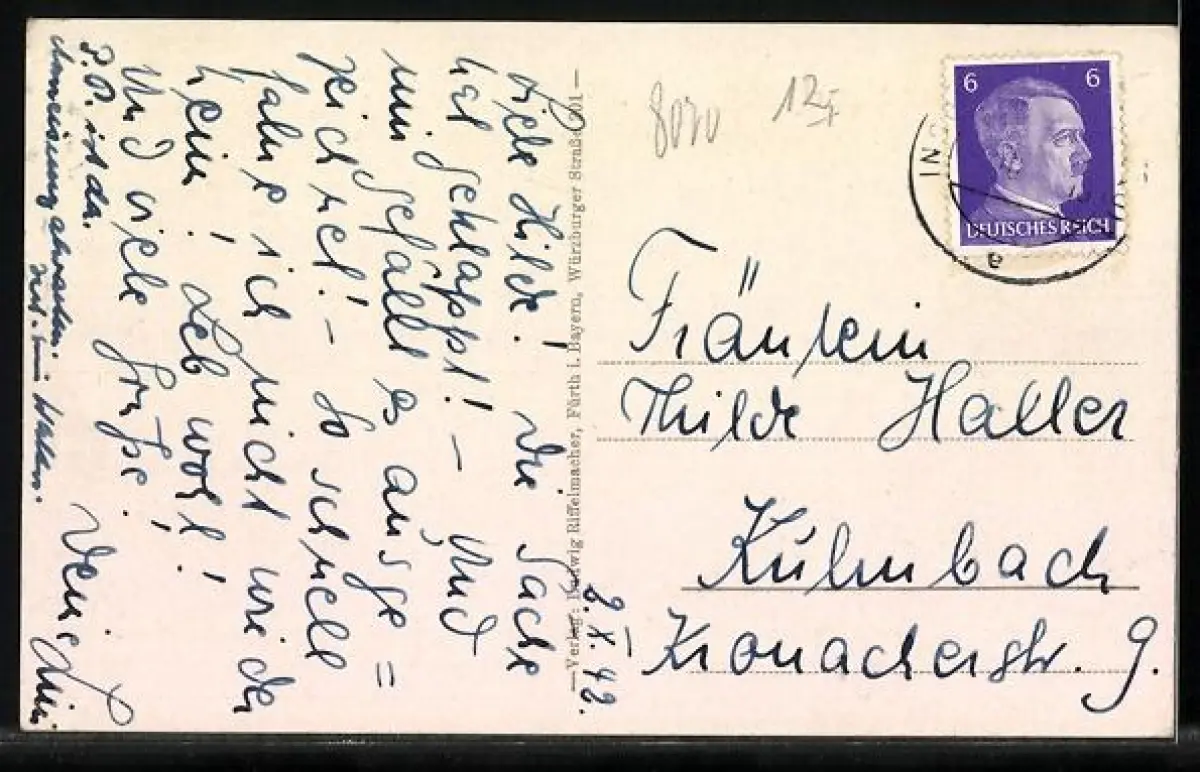 Liebe Hilde! Die Sache
hat geklappt! – Und
mir gefällt es ausge=
zeichnet! – So schnell
fahr ich nicht wieder
heim! Leb wohl!
Und viele Grüße!
Deine
P.S. ist da.
abwarten.
2.X.42.
– Verlag: Ludwig Riffelmacher, Fürth i. Bayern, Würzburger Straße 101 –
8070
12,-
6 6
DEUTSCHES REICH
Fräulein
Thilde Haller
Kulmbach
Kronacherstr. 9.